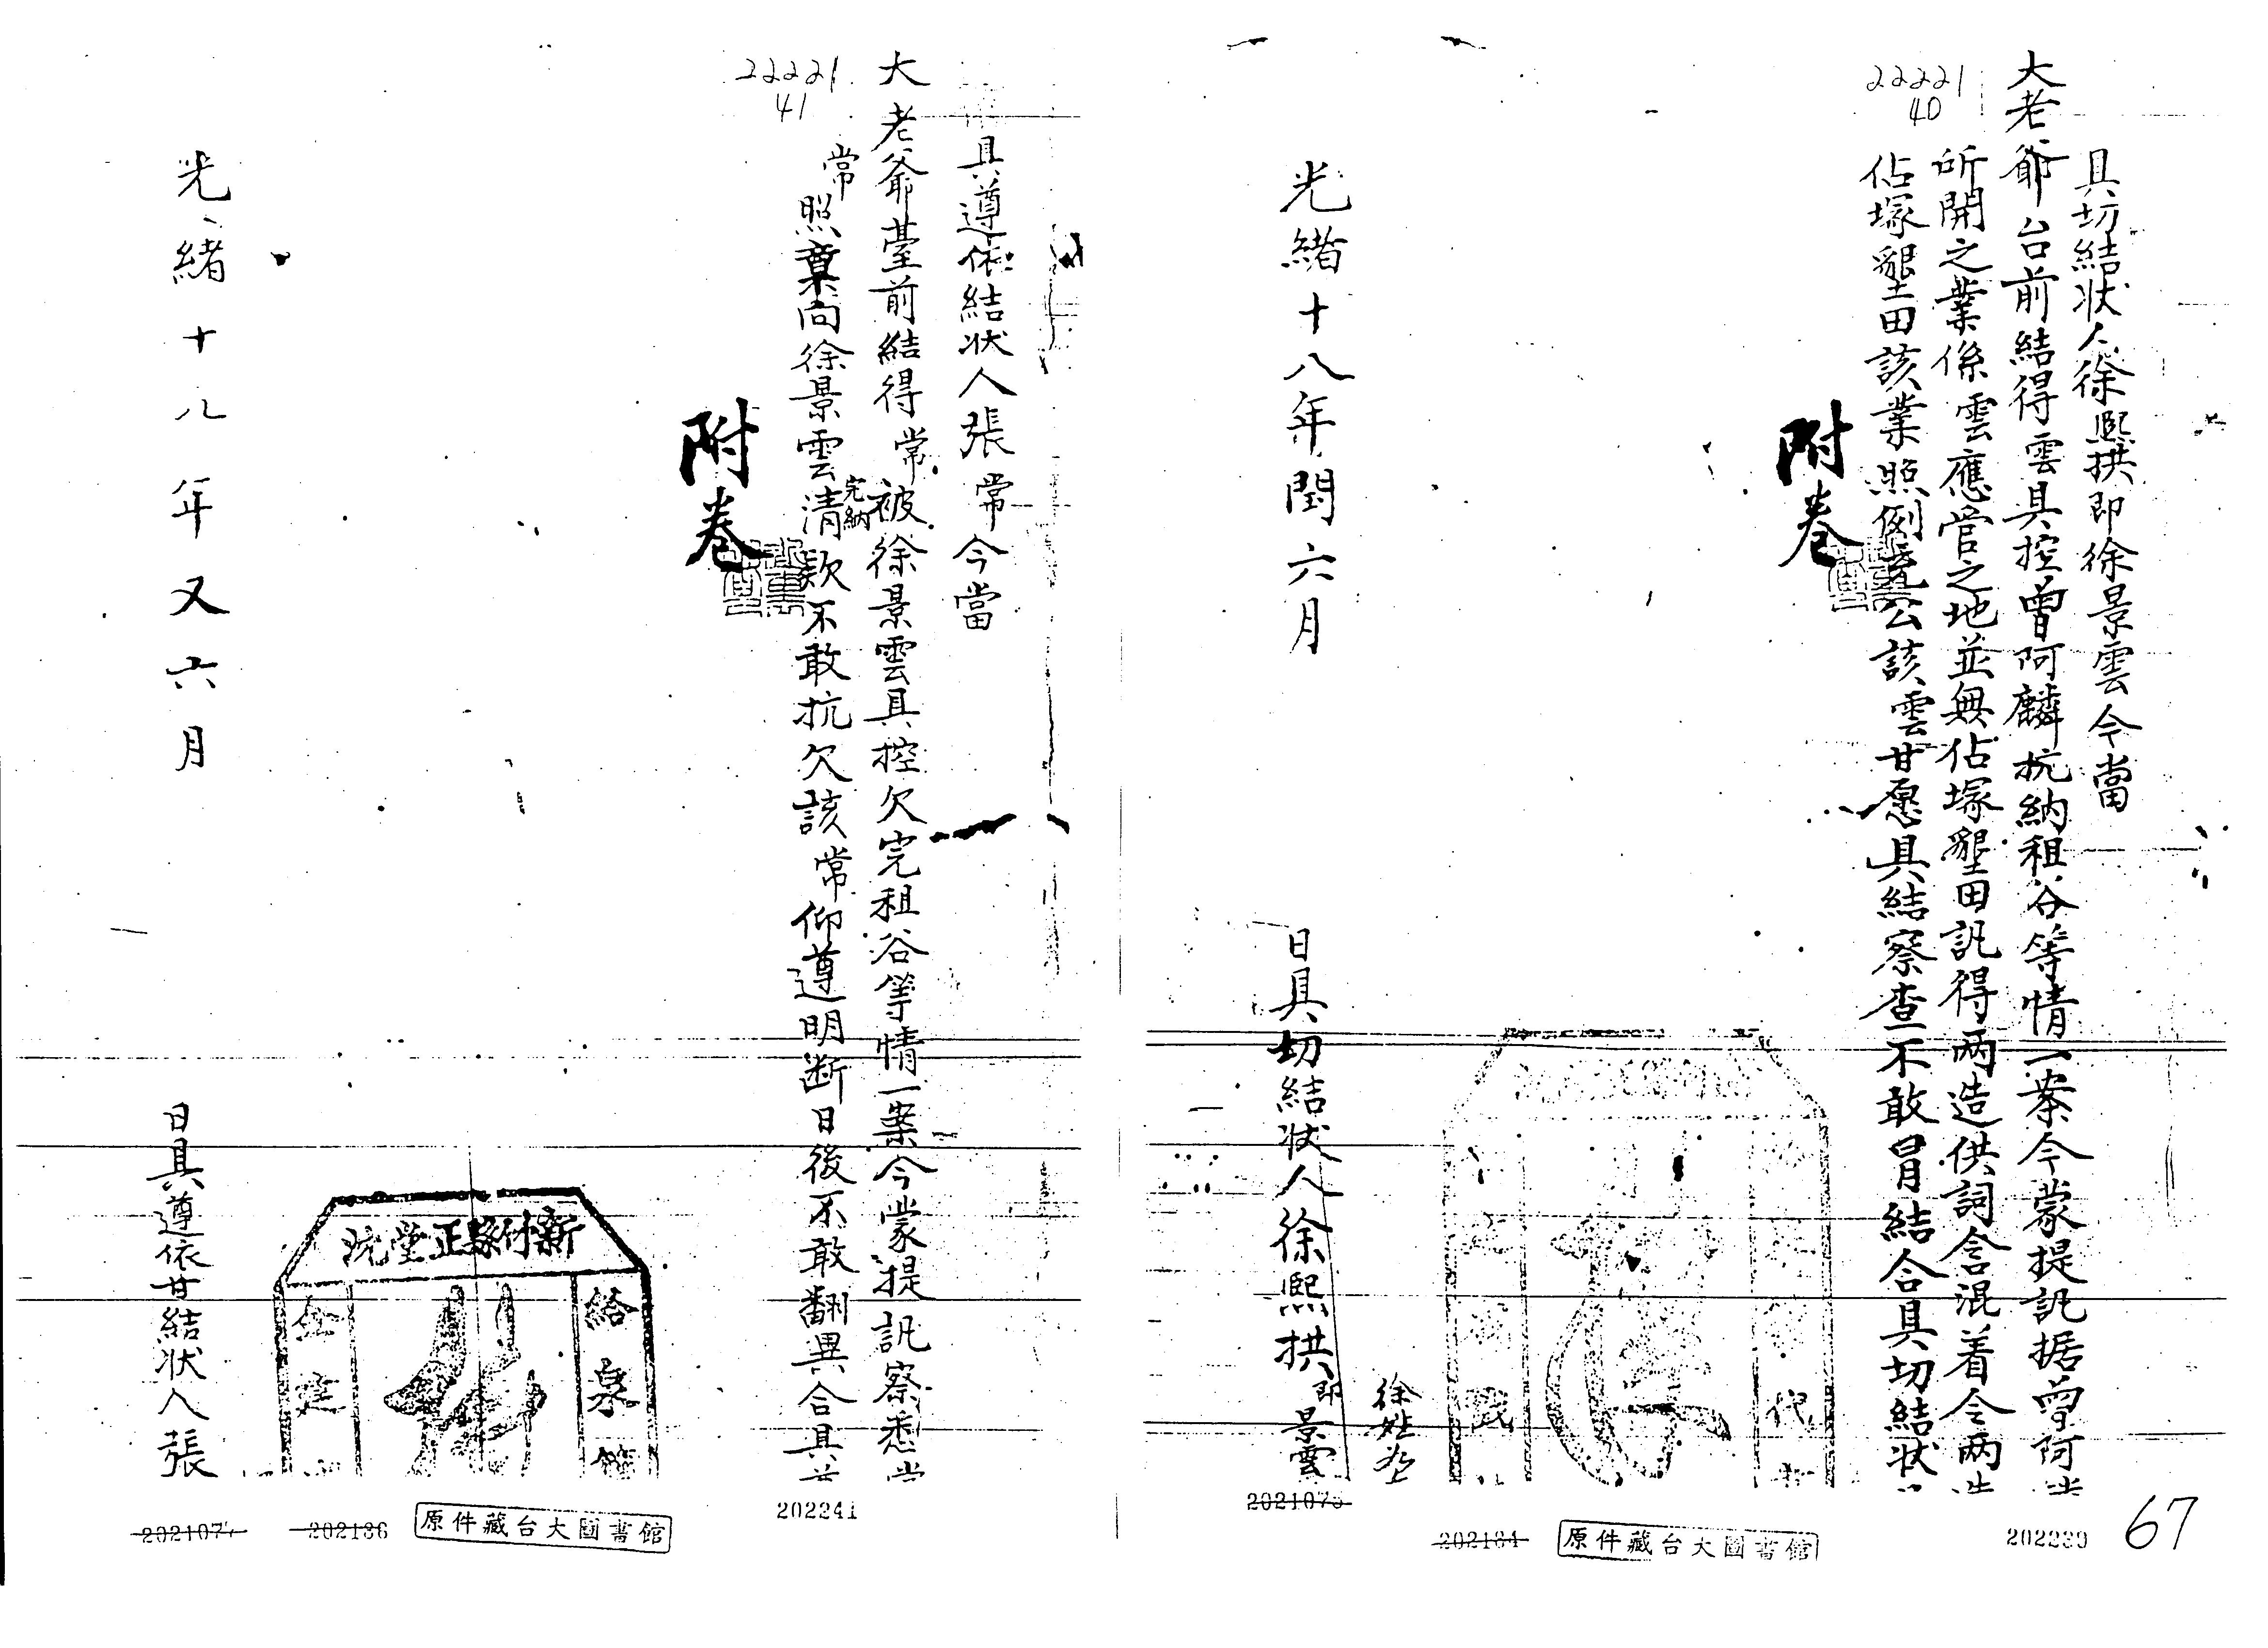 22221
40
具切結狀人徐熙拱即徐景雲今當
大老爺台前結得雲具控曾阿麟抗納租谷等情一案今蒙提訊据曾阿
所開之業係雲應管之地並無佔塚墾田訊得兩造供詞含混着令兩
佔塚墾田該業照例充公該雲甘愿具結察查不敢冒結合具切結狀
附卷
光緒十八年閏六月
日具切結狀人徐熙拱即景雲
徐姓
代
戳
2021075
202184
原件藏台大圖書館
202239
67
22221
41
具遵依結狀人張常今當
大老爺臺前結得常被徐景雲具控欠完租谷等情一案今蒙提訊察悉
常照章向徐景雲完納清款不敢抗欠該常仰遵明断日後不敢翻異合具
附卷
給
泉
光緒十八年又六月
日具遵依甘結狀人張
2021077
202186
原件藏台大圖書館
202241